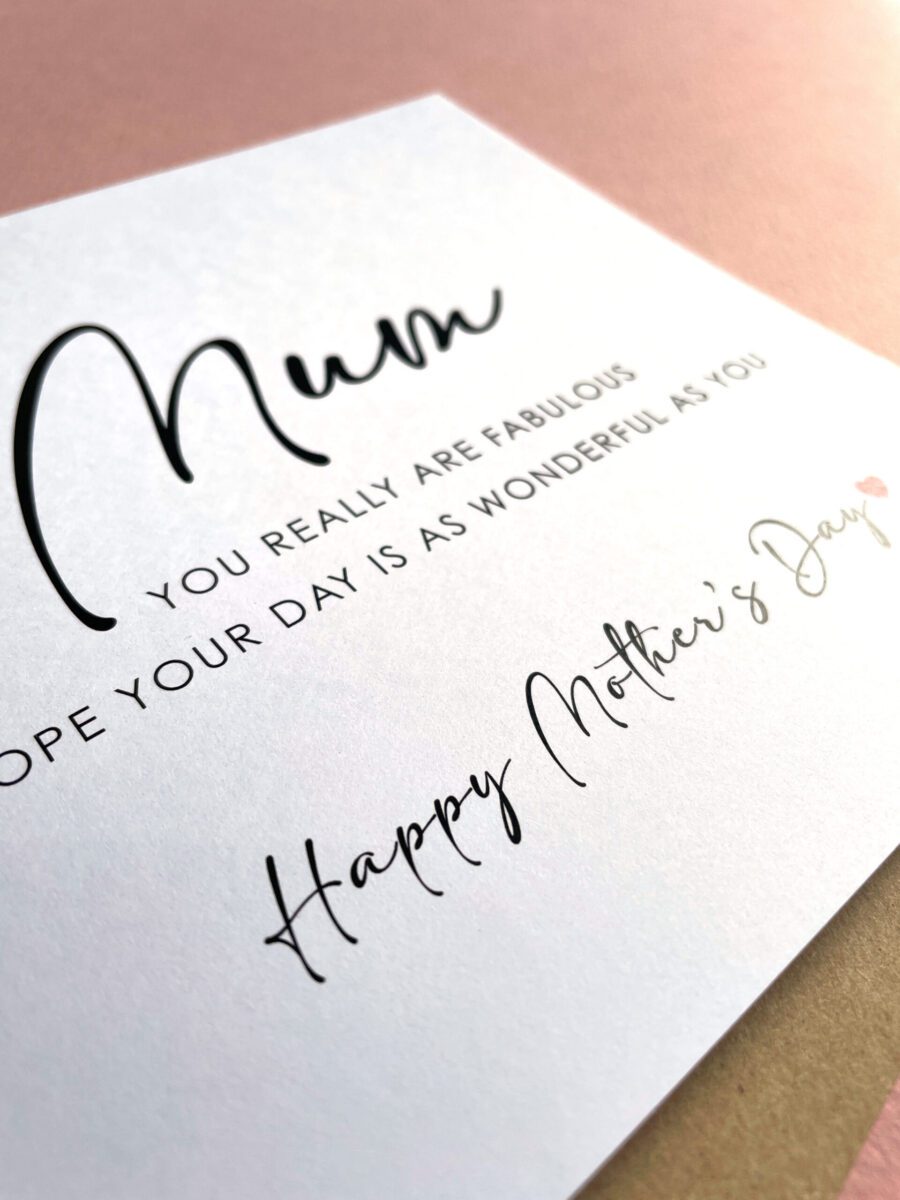 Mum
YOU REALLY ARE FABULOUS
OPE YOUR DAY IS AS WONDERFUL AS YOU
Happy Mother's Day